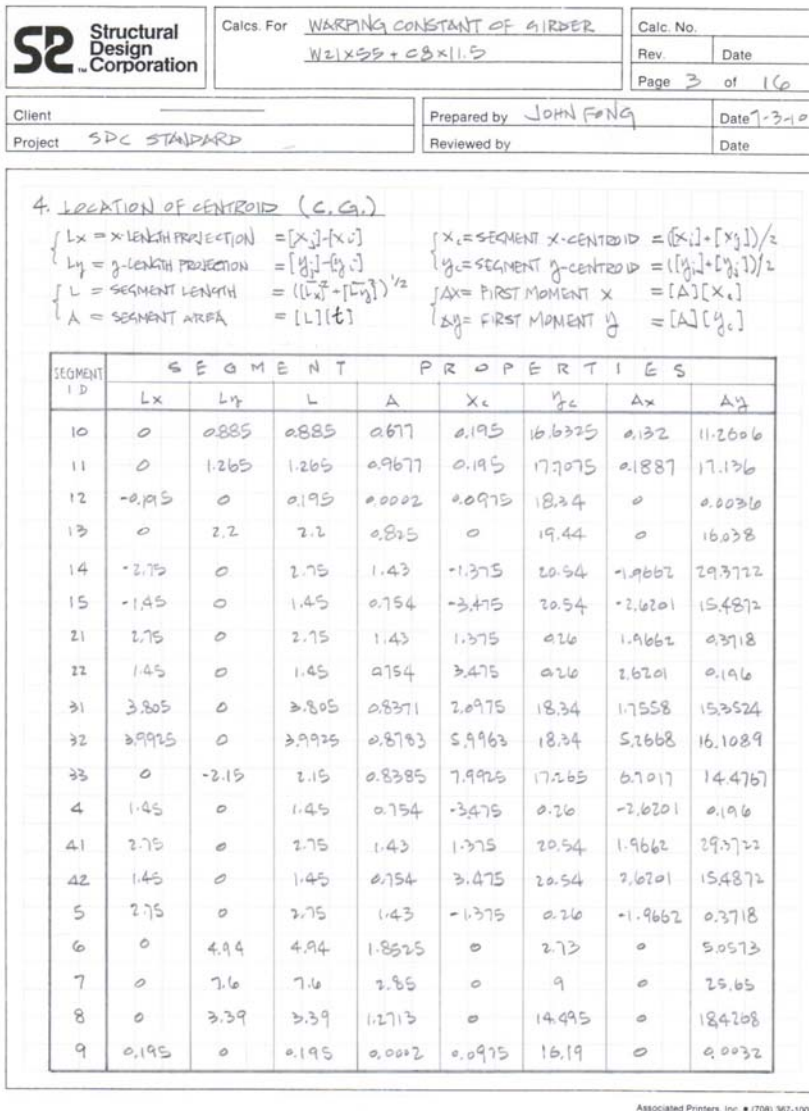 Structural
Design
Corporation
SP
Calcs. For WARPING CONSTANT OF GIRDER
W21x55 + C8x11.5
Calc. No.
Rev. Date
Page 3 of 16
Client
Prepared by JOHN FONG
Date 7-3-10
Project SDC STANDARD
Reviewed by
Date
4. LOCATION OF CENTROID (C.G.)
Lx = x-LENGTH PROJECTION = [xj]-[xi]
Ly = y-LENGTH PROJECTION = [yj]-[yi]
L = SEGMENT LENGTH = ([Lx]²+[Ly]²)^1/2
A = SEGMENT AREA = [L][t]
Xc = SEGMENT X-CENTROID = ([xi]+[xj])/2
yc = SEGMENT y-CENTROID = ([yi]+[yj])/2
Ax = FIRST MOMENT X = [A][Xc]
Ay = FIRST MOMENT y = [A][yc]
SEGMENT ID SEGMENT PROPERTIES
Lx Ly L A Xc yc Ax Ay
10 0 0.885 0.885 0.677 0.195 16.6325 0.132 11.2606
11 0 1.265 1.265 0.9677 0.195 17.7075 0.1887 17.136
12 -0.195 0 0.195 0.0002 0.0975 18.34 0 0.0036
13 0 2.2 2.2 0.825 0 19.44 0 16.038
14 -2.75 0 2.75 1.43 -1.375 20.54 -1.9662 29.3722
15 -1.45 0 1.45 0.754 -3.475 20.54 -2.6201 15.4872
21 2.75 0 2.75 1.43 1.375 0.26 1.9662 0.3718
22 1.45 0 1.45 0.754 3.475 0.26 2.6201 0.196
31 3.805 0 3.805 0.8371 2.0975 18.34 1.7558 15.3524
32 3.9925 0 3.9925 0.8783 5.9963 18.34 5.2668 16.1089
33 0 -2.15 2.15 0.8385 7.9925 17.265 6.7017 14.4767
4 1.45 0 1.45 0.754 -3.475 0.26 -2.6201 0.196
41 2.75 0 2.75 1.43 1.375 20.54 1.9662 29.3722
42 1.45 0 1.45 0.754 3.475 20.54 2.6201 15.4872
5 2.75 0 2.75 1.43 -1.375 0.26 -1.9662 0.3718
6 0 4.94 4.94 1.8525 0 2.73 0 5.0573
7 0 7.6 7.6 2.85 0 9 0 25.65
8 0 3.39 3.39 1.2713 0 14.495 0 18.4268
9 0.195 0 0.195 0.0002 0.0975 16.19 0 0.0032